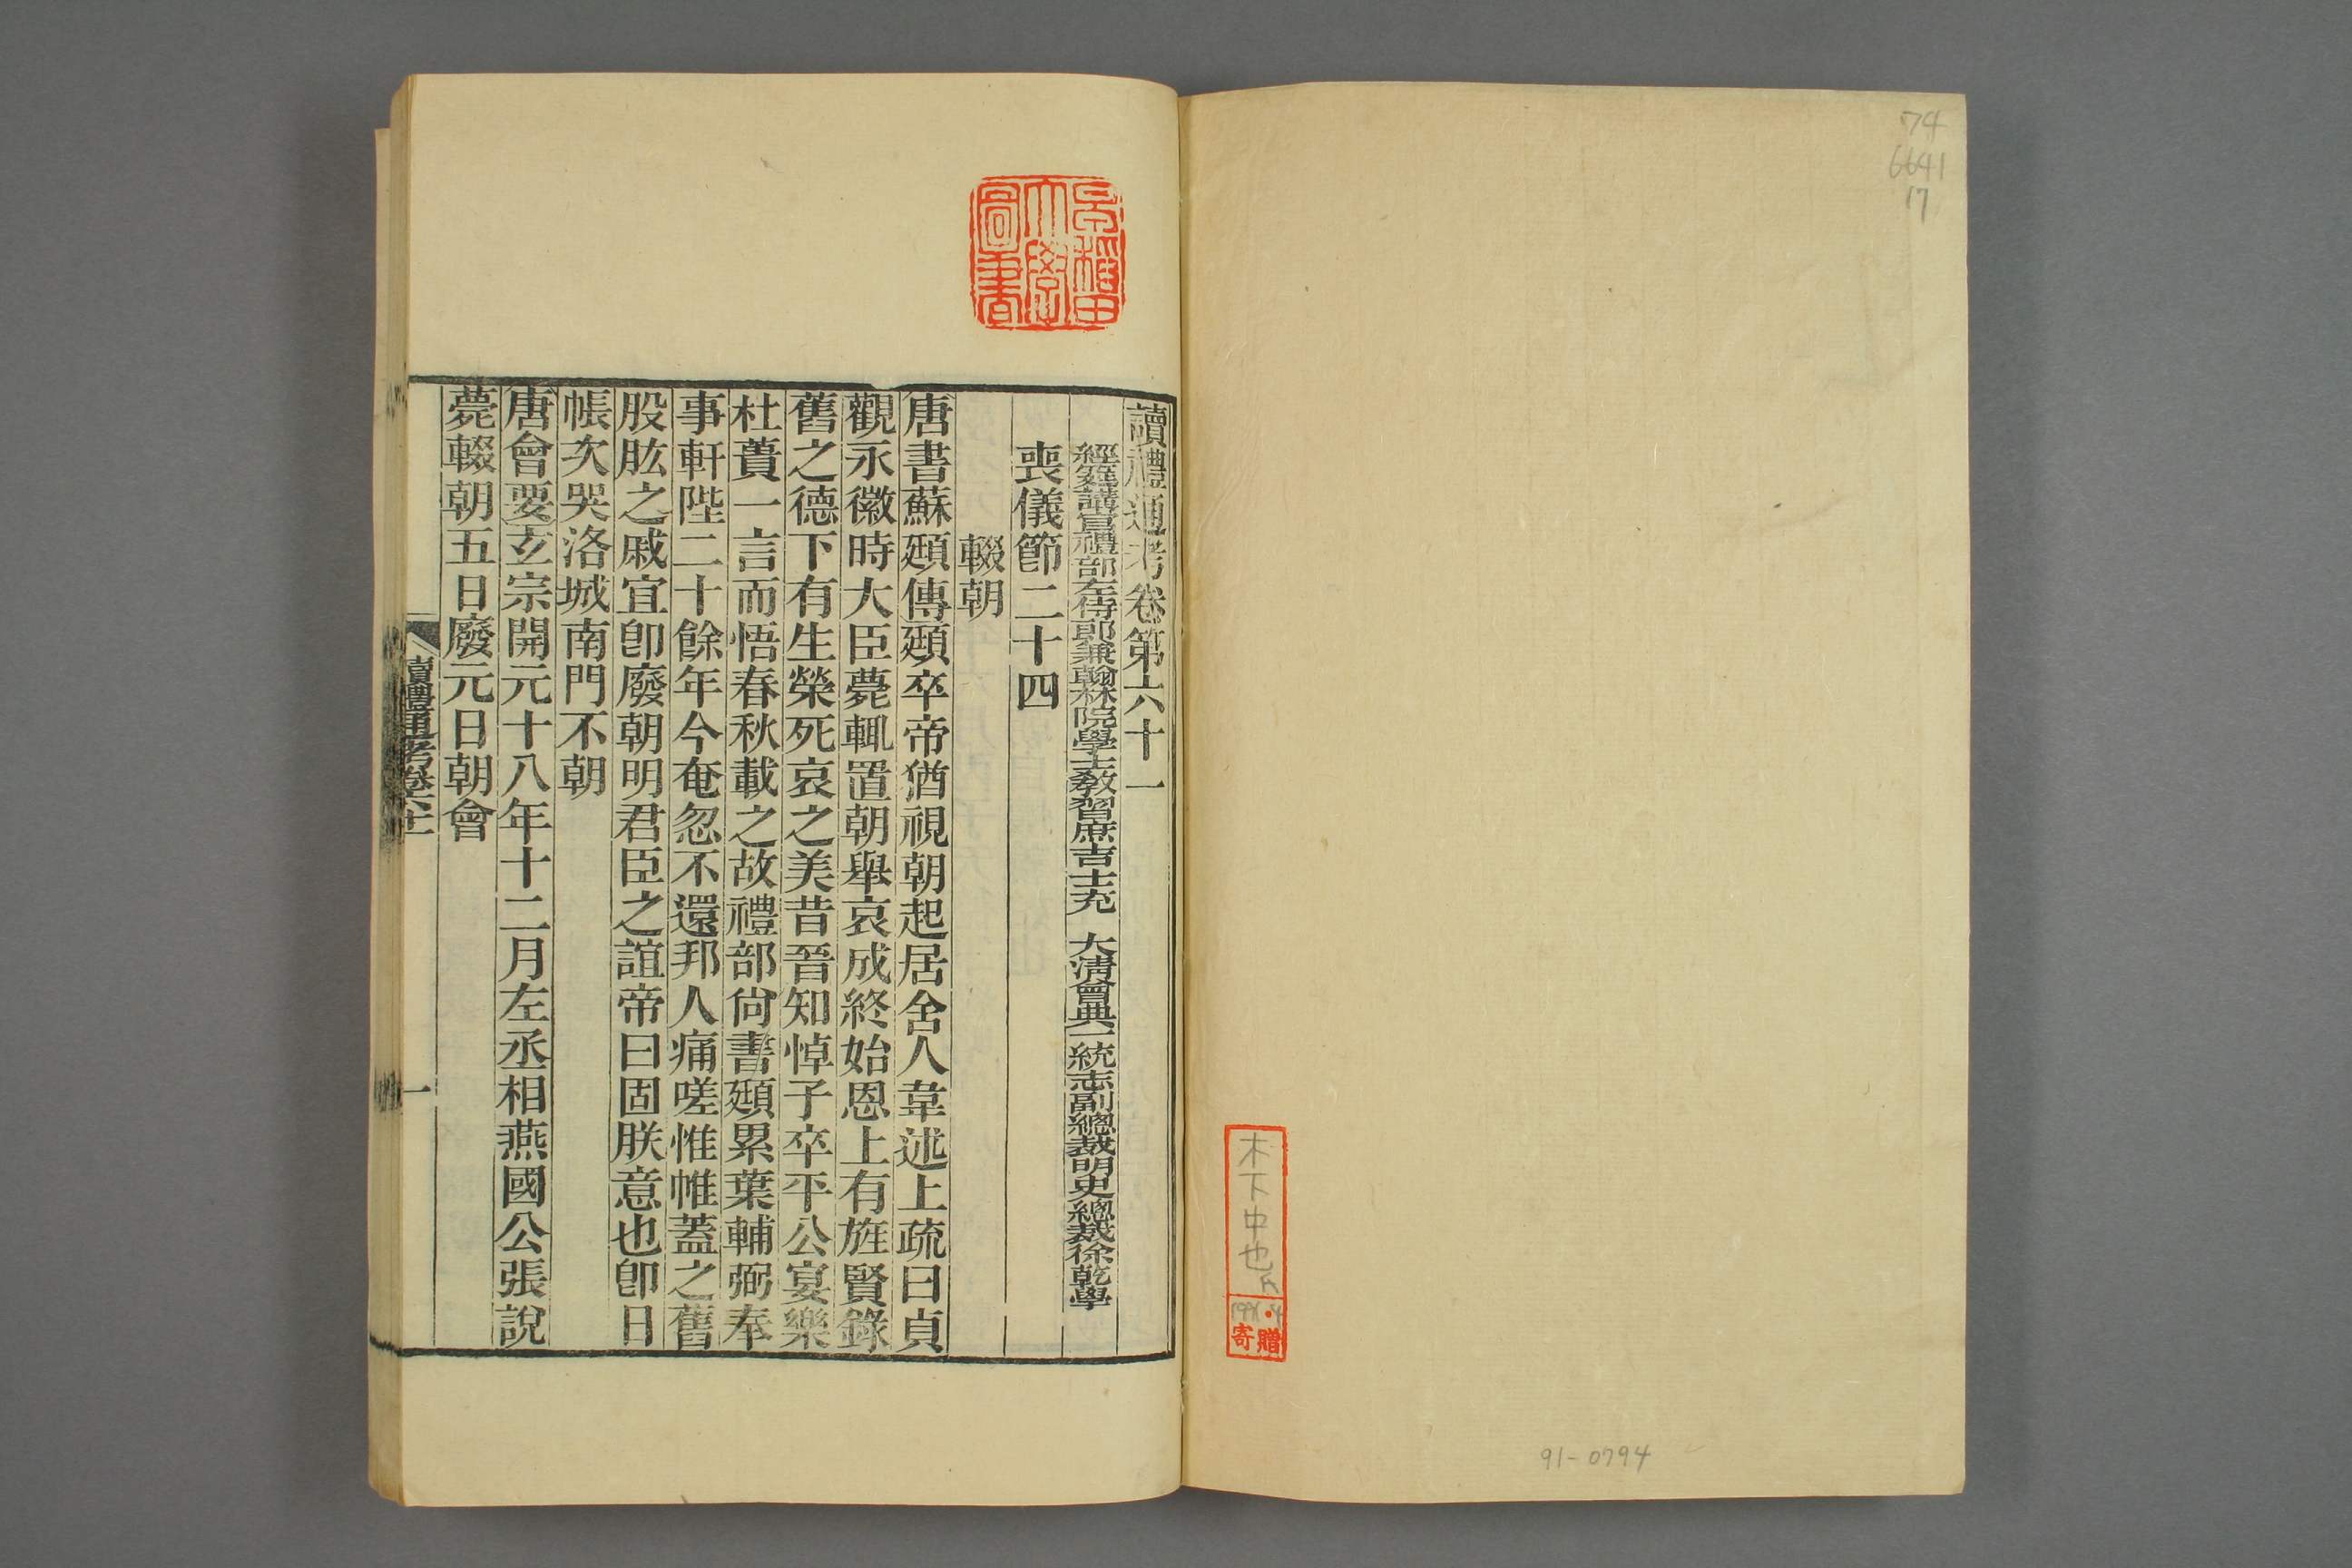 74
6641
17
木下中也氏
寄贈
91-0794
早稲田
大學
圖書
讀禮通考卷第六十一
經筵講官禮部左侍郎兼翰林院學士教習庶吉士充 大淸會典一統志副總裁明史總裁徐乾學
喪儀節二十四
輟朝
唐書蘇頲傳頲卒帝猶視朝起居舍人韋述上疏曰貞
觀永徽時大臣薨輒置朝舉哀成終始恩上有旌賢錄
舊之德下有生榮死哀之美昔晉知悼子卒平公宴樂
杜蕢一言而悟春秋載之故禮部尙書頲累葉輔弼奉
事軒陛二十餘年今奄忽不還邦人痛嗟惟帷蓋之舊
股肱之戚宜卽廢朝明君臣之誼帝曰固朕意也卽日
帳次哭洛城南門不朝
唐會要玄宗開元十八年十二月左丞相燕國公張說
薨輟朝五日廢元日朝會
讀禮通考卷六十一
一